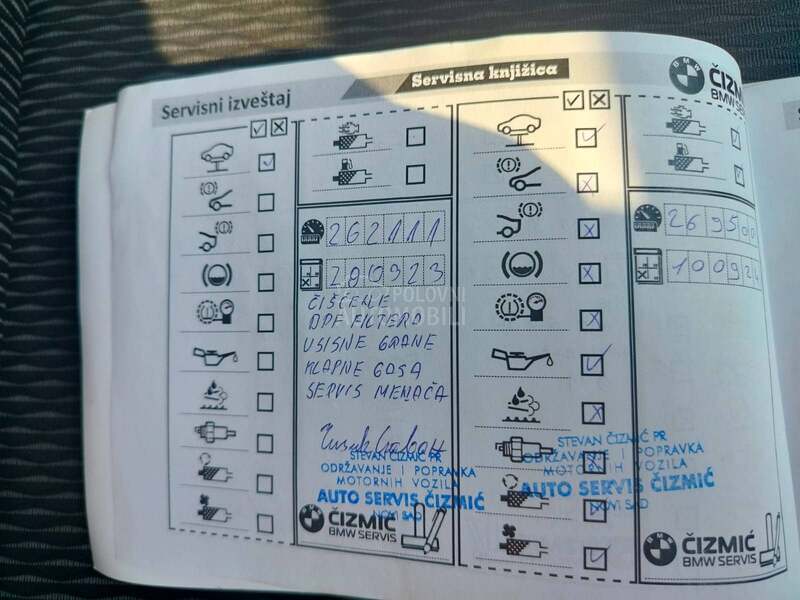 Servisni izveštaj
Servisna knjižica
ČIZMIĆ
BMW SERVIS
262111
200923
ČIŠĆENJE
DPF FILTERA
USISNE GRANE
KLAPNE GASA
SERVIS MENJAČA
STEVAN ČIZMIĆ PR
ODRŽAVANJE I POPRAVKA
MOTORNIH VOZILA
AUTO SERVIS ČIZMIĆ
NOVI SAD
ČIZMIĆ
BMW SERVIS
269500
100924
STEVAN ČIZMIĆ PR
ODRŽAVANJE I POPRAVKA
MOTORNIH VOZILA
AUTO SERVIS ČIZMIĆ
NOVI SAD
ČIZMIĆ
BMW SERVIS
POLOVNI
AUTOMOBILI